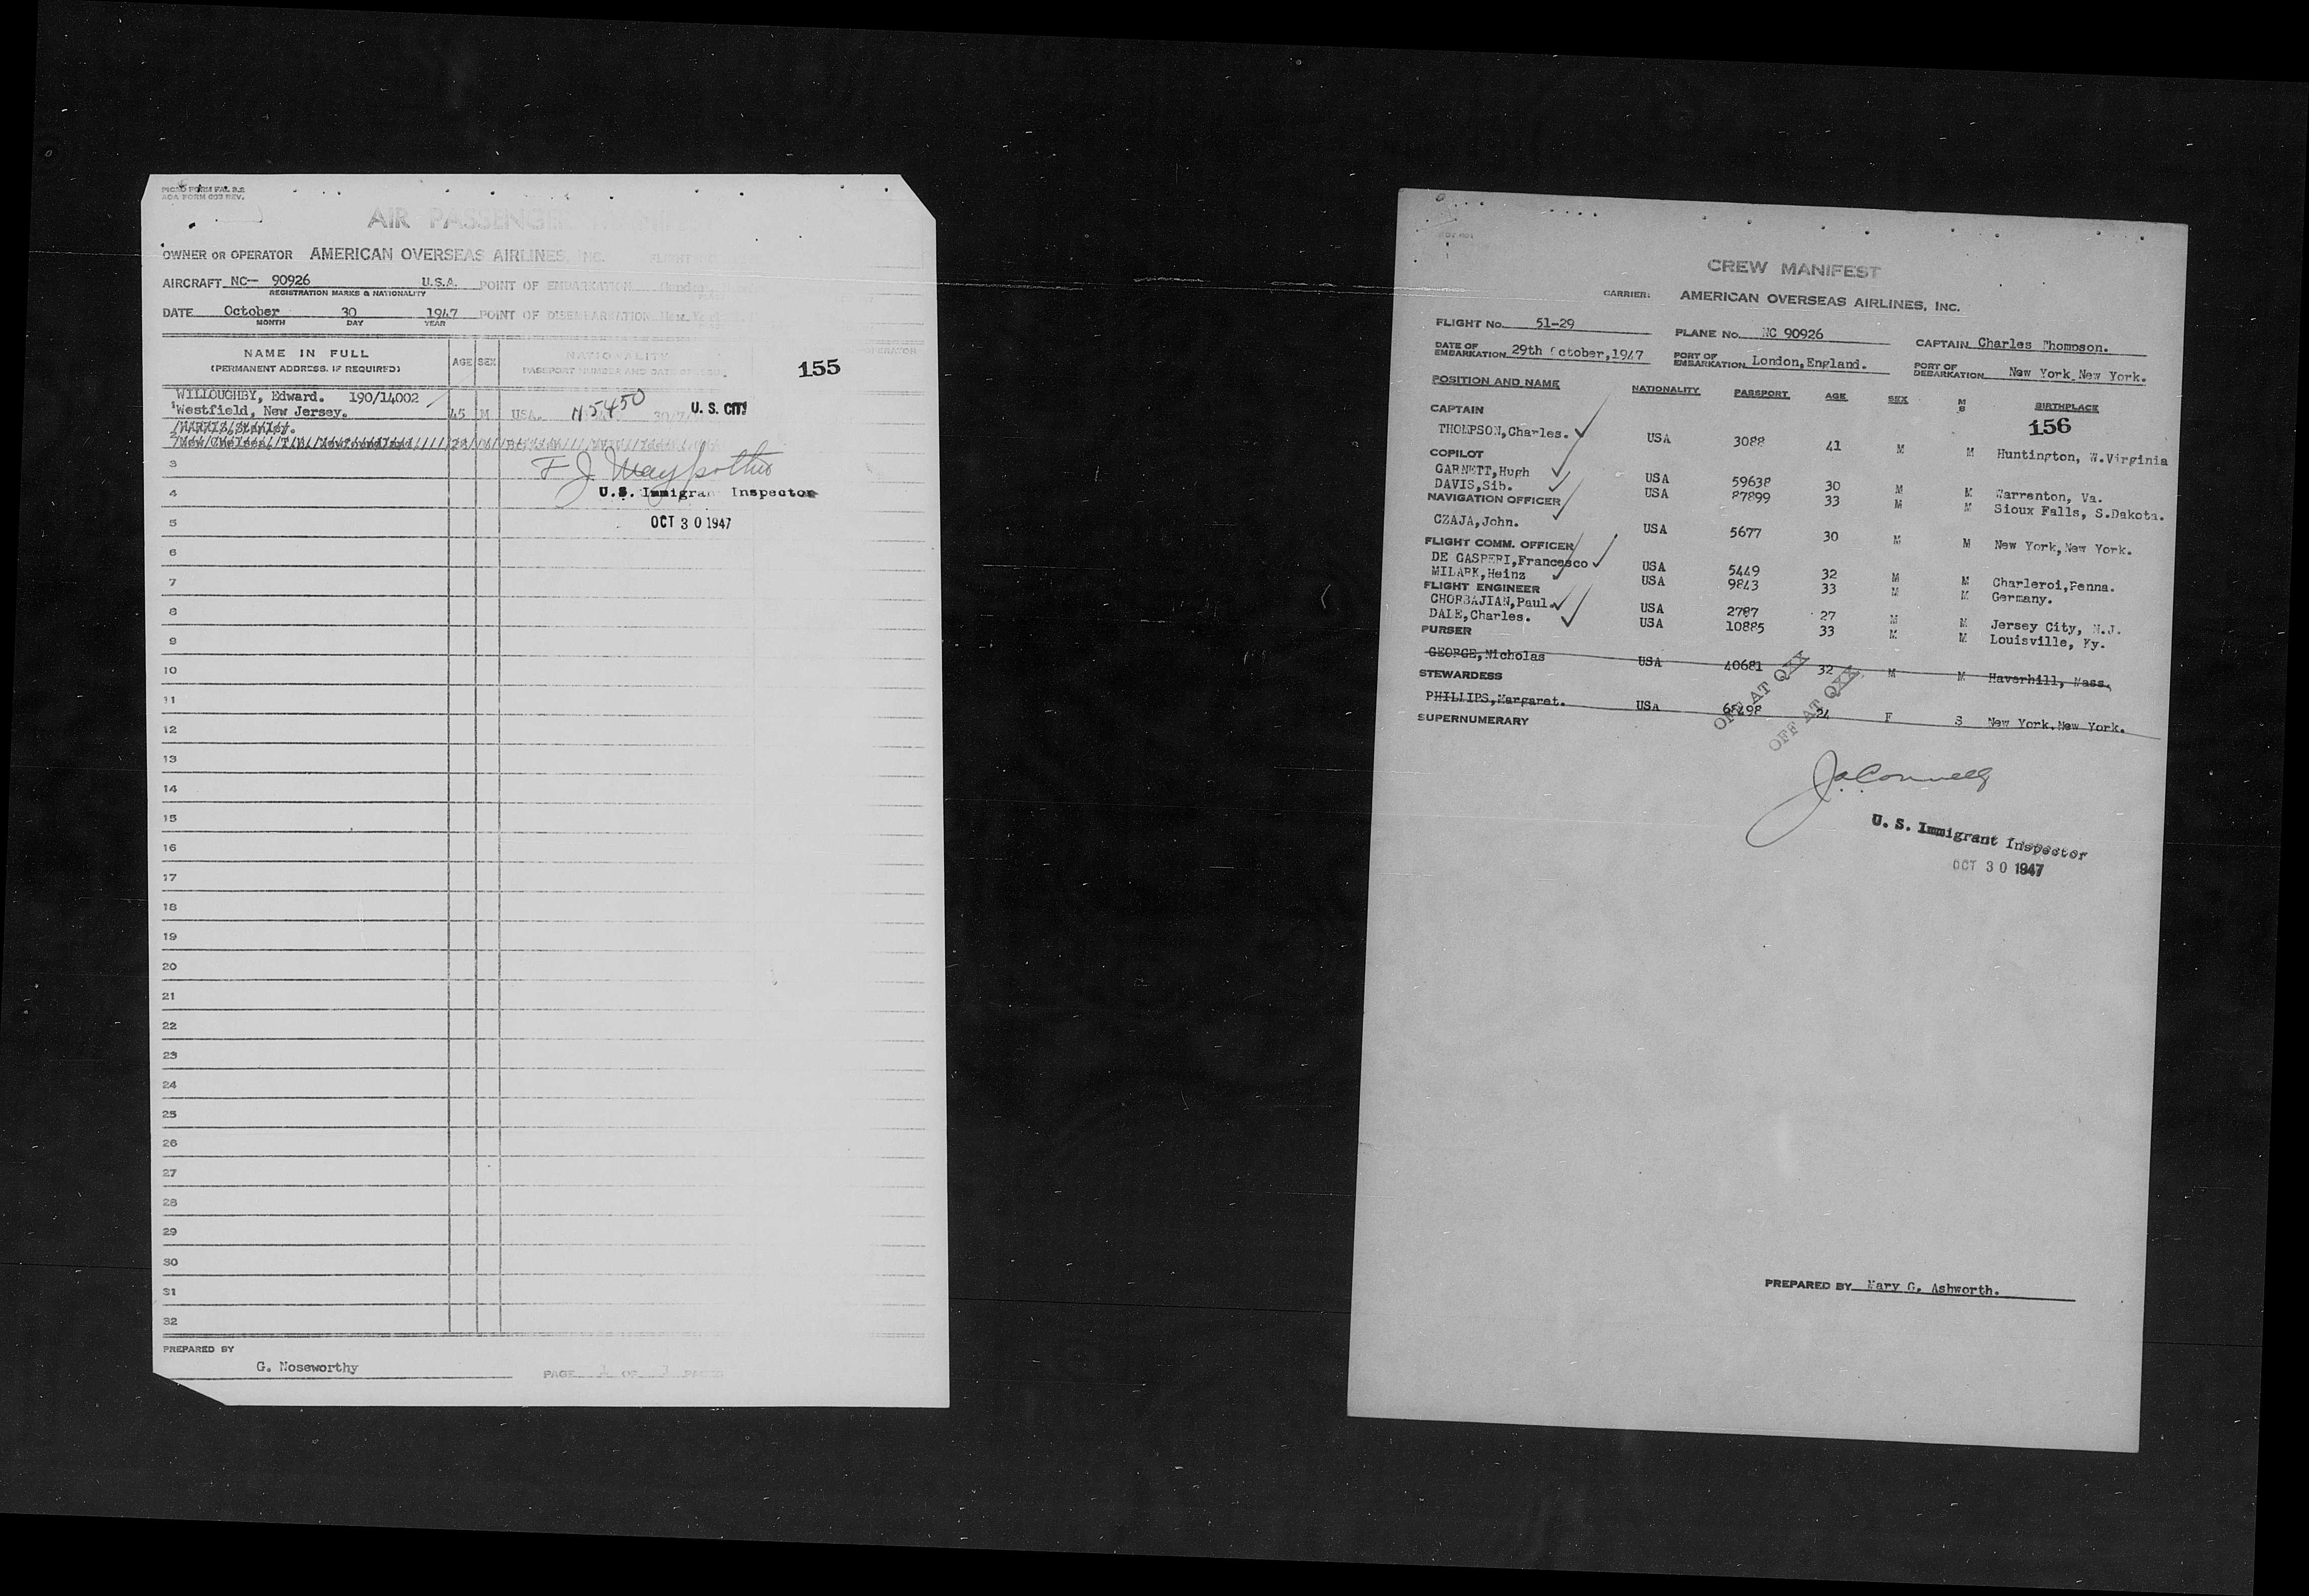 PICAO FORM FAL 3.2
AOA FORM 633 REV.
AIR PASSENGER
OWNER OR OPERATOR AMERICAN OVERSEAS AIRLINES, INC. FLIGHT
AIRCRAFT NC— 90926 U.S.A. POINT OF EMBARKATION Gander
REGISTRATION MARKS & NATIONALITY
DATE October 30 1947 POINT OF DISEMBARKATION New York
MONTH DAY YEAR
NAME IN FULL AGE SEX NATIONALITY
(PERMANENT ADDRESS, IF REQUIRED) PASSPORT NUMBER AND DATE OF
155
WILLOUGHBY, Edward. 190/14002
1 Westfield, New Jersey. 45 M USA. N5450 U. S. CITY
2
3
U.S. Immigrant Inspector
4
OCT 30 1947
5
6
7
8
9
10
11
12
13
14
15
16
17
18
19
20
21
22
23
24
25
26
27
28
29
30
31
32
PREPARED BY
G. Noseworthy
PAGE OF 3 PAGES
CREW MANIFEST
CARRIER: AMERICAN OVERSEAS AIRLINES, INC.
FLIGHT No. 51-29 PLANE No. NC 90926 CAPTAIN Charles Thompson.
DATE OF EMBARKATION 29th October,1947 PORT OF EMBARKATION London,England. PORT OF DEBARKATION New York,New York.
POSITION AND NAME NATIONALITY PASSPORT AGE SEX M S BIRTHPLACE
156
CAPTAIN
THOMPSON,Charles. USA 3088 41 M M Huntington, W.Virginia
COPILOT
GARNETT,Hugh USA 59638 30 M M Warrenton, Va.
DAVIS,Sib. USA 87899 33 M M Sioux Falls, S.Dakota.
NAVIGATION OFFICER
CZAJA,John. USA 5677 30 M M New York,New York.
FLIGHT COMM. OFFICER
DE GASPERI,Francesco USA 5449 32 M M Charleroi,Penna.
MILARK,Heinz USA 9843 33 M M Germany.
FLIGHT ENGINEER
CHORBAJIAN,Paul. USA 2787 27 M M Jersey City, N.J.
DALE,Charles. USA 10885 33 M M Louisville, Ky.
PURSER
GEORGE,Nicholas USA 40681 32 M M Haverhill, Mass.
STEWARDESS
PHILLIPS,Margaret. USA 68498 24 F S New York.New York.
SUPERNUMERARY
OFF AT QXX
OFF AT QXX
U. S. Immigrant Inspector
OCT 30 1947
PREPARED BY Mary G. Ashworth.